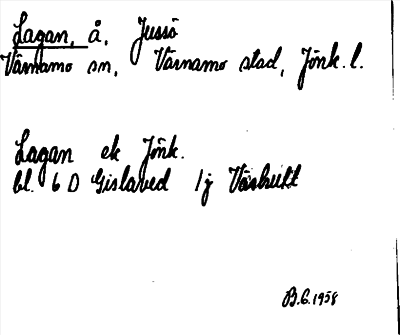 Lagan, å, Jussö
Värnamo sn, Värnamo stad, Jönk. l.
Lagan ek Jönk.
bl. 6 D Gislaved 1j
B.G. 1958